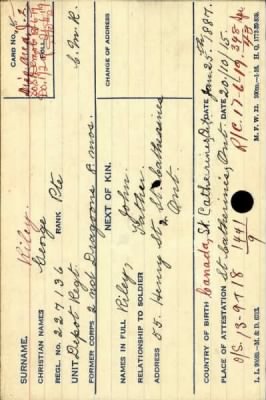 SURNAME, Riley
CHRISTIAN NAMES George
REGL. No. 227136 RANK Pte
UNIT Depot Regt. C.M.R.
FORMER CORPS 2nd Dragoons 8 mos.
CARD No.
CHANGE OF ADDRESS
NEXT OF KIN.
NAMES IN FULL Riley, John
RELATIONSHIP TO SOLDIER Father
ADDRESS 55. Henry St. St Catharines
Ont.
COUNTRY OF BIRTH Canada, St. Catharines, DATE Jan. 25th, 1887.
PLACE OF ATTESTATION St Catharines, Ont. DATE 20/10/15.
O/S. 13-9-17 18 R/C. 17-6-19
441
9
L. L. M. & D.
M. F. W. 22. H. Q.